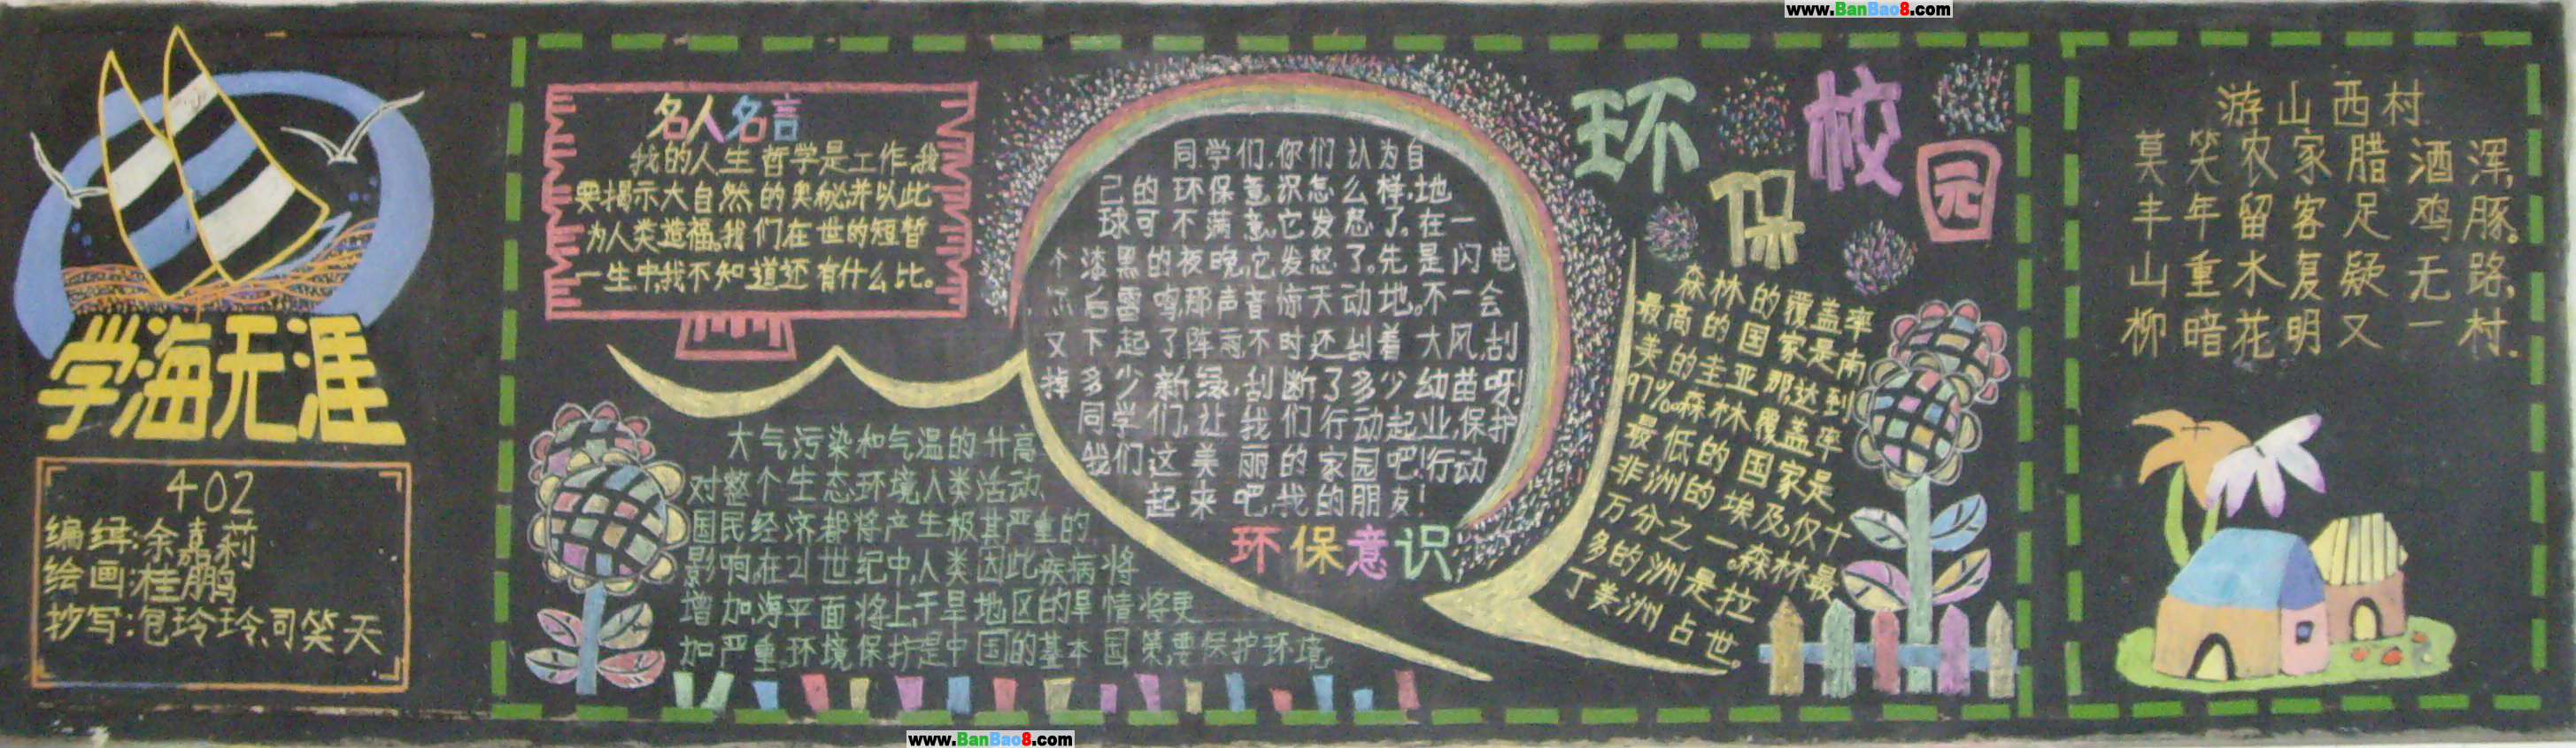 www.BanBao8.com
学海无涯
402
编绎:余嘉莉
绘画:桂鹏
抄写:包玲玲、司笑天
名人名言
我的人生哲学是工作,我
要揭示大自然的奥秘,并以此
为人类造福。我们在世的短暂
一生中,我不知道还有什么比。
大气污染和气温的升高
对整个生态环境人类活动、
国民经济都将产生极甚严重的
影响。在21世纪中,人类因此疾病将
增加,海平面将上,干旱地区的旱情将更
加严重。环境保护是中国的基本国策,要保护环境。
同学们,你们认为自
己的环保意识怎么样,地
球可不满意,它发怒了。在一
个漆黑的夜晚,它发怒了。先是闪电
然后雷鸣,那声音惊天动地。不一会
又下起了阵雨,不时还刮着大风,刮
掉多少新绿,刮断了多少幼苗呀!
同学们,让我们行动起业,保护
我们这美丽的家园吧!行动
起来吧,我的朋友!
环保意识
环保校园
森林的覆盖率
最高的国家是南
美的圭亚那,达到
97%。森林覆盖率
最低的国家是
非洲的埃及,仅十
万分之一。森林最
多的洲是拉
丁美洲占世。
游山西村
莫笑农家腊酒浑,
丰年留客足鸡豚。
山重水复疑无路,
柳暗花明又一村.
www.BanBao8.com